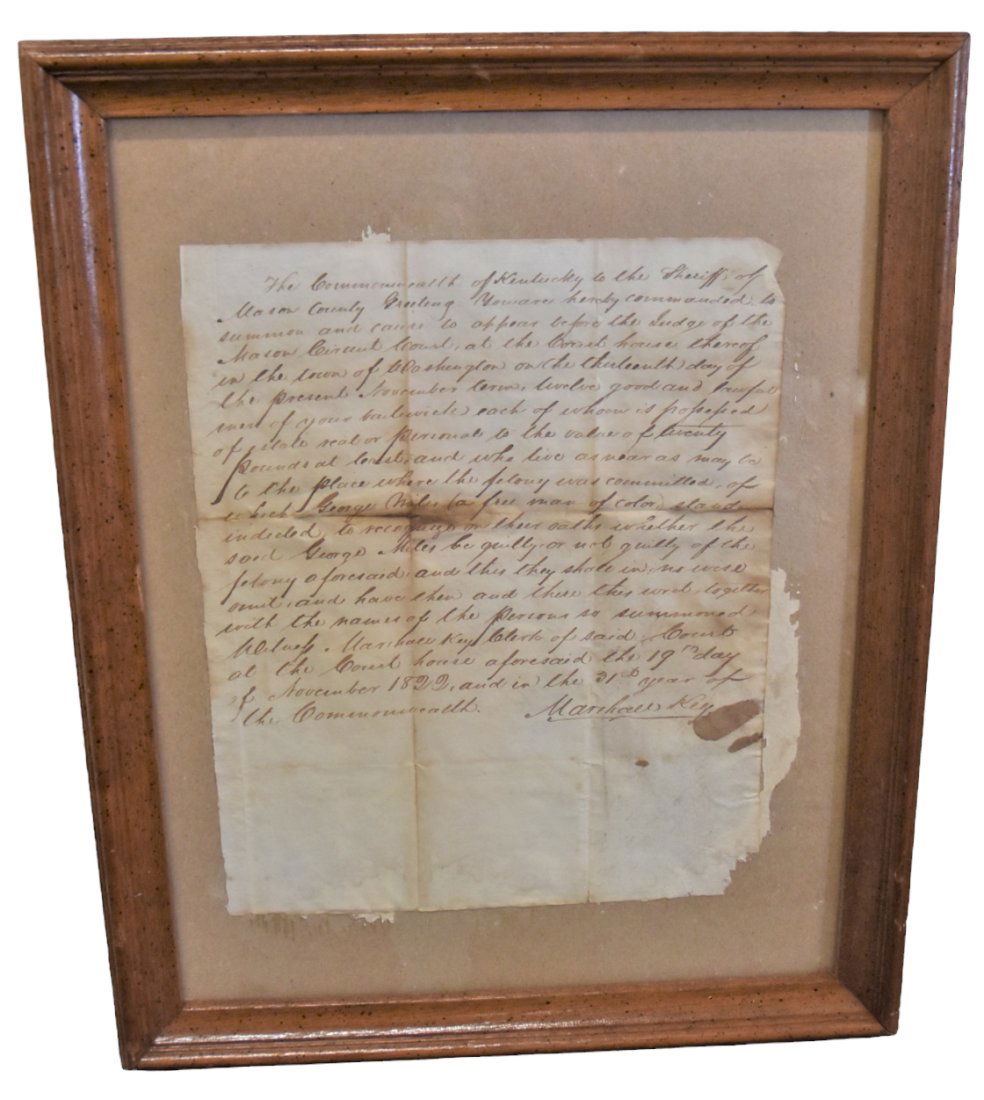 The Commonwealth of Kentucky to the Sheriff of
Mason County Greeting You are hereby commanded to
summon and cause to appear before the Judge of the
Mason Circuit Court, at the Court house thereof
in the town of Washington on the thirteenth day of
the present November term, twelve good and lawful
men of your bailiwick each of whom is possessed
of estate real or personal to the value of twenty
Pounds at least, and who live as near as may be
to the place where the felony was committed, of
which George Miles (a free man of color) stands
indicted, to recognize on their oaths whether the
said George Miles be guilty or not guilty of the
felony aforesaid, and this they shall in no wise
omit, and have then and there this writ, together
with the names of the persons so summoned
Witness Marshall Key Clerk of said Court
at the Court house aforesaid the 19th day
of November 1822, and in the 31st year of
the Commonwealth. Marshall Key